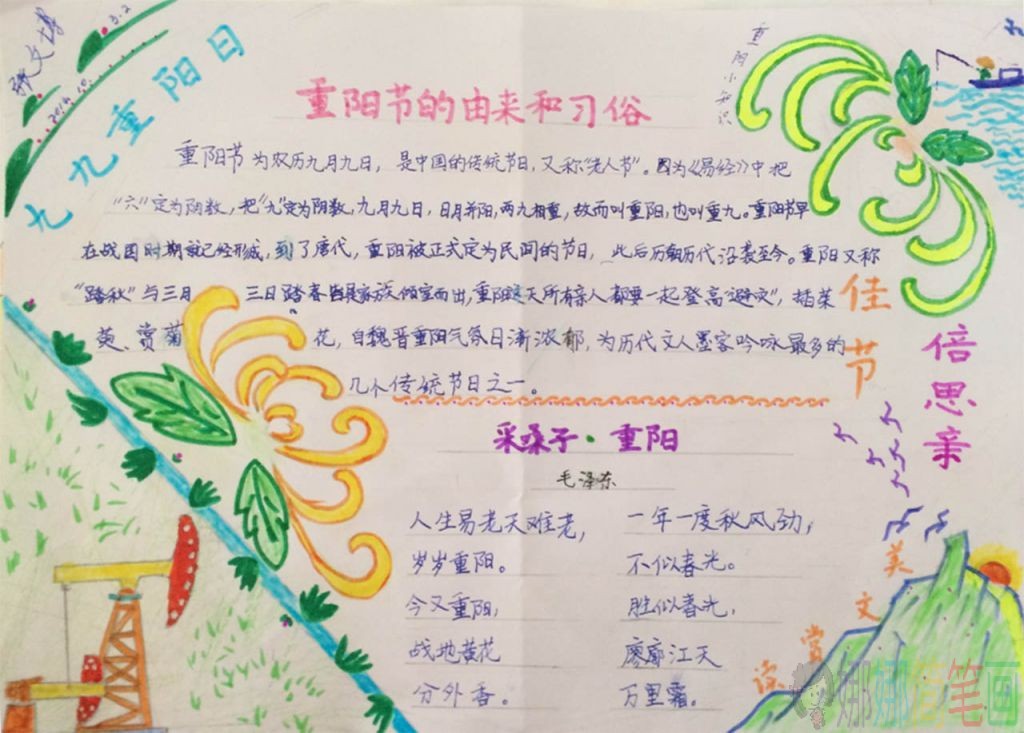 张文博
3.2
九九重阳日
重阳小知识
重阳节的由来和习俗
重阳节为农历九月九日，是中国的传统节日，又称“老人节”。因为《易经》中把
“六”定为阴数，把“九”定为阴数，九月九日，日月并阳，两九相重，故而叫重阳，也叫重九。重阳节早
在战国时期就已经形成，到了唐代，重阳被正式定为民间的节日，此后历朝历代沿袭至今。重阳又称
“踏秋”与三月三日踏春皆是家族倾室而出，重阳这天所有亲人都要一起登高“避灾”，插茱
萸、赏菊花，自魏晋重阳气氛日渐浓郁，为历代文人墨客吟咏最多的
几个传统节日之一。
佳节
倍思亲
采桑子·重阳
毛泽东
人生易老天难老，
岁岁重阳。
今又重阳，
战地黄花
分外香。
一年一度秋风劲，
不似春光。
胜似春光，
廖廓江天
万里霜。
美文赏读
娜娜简笔画